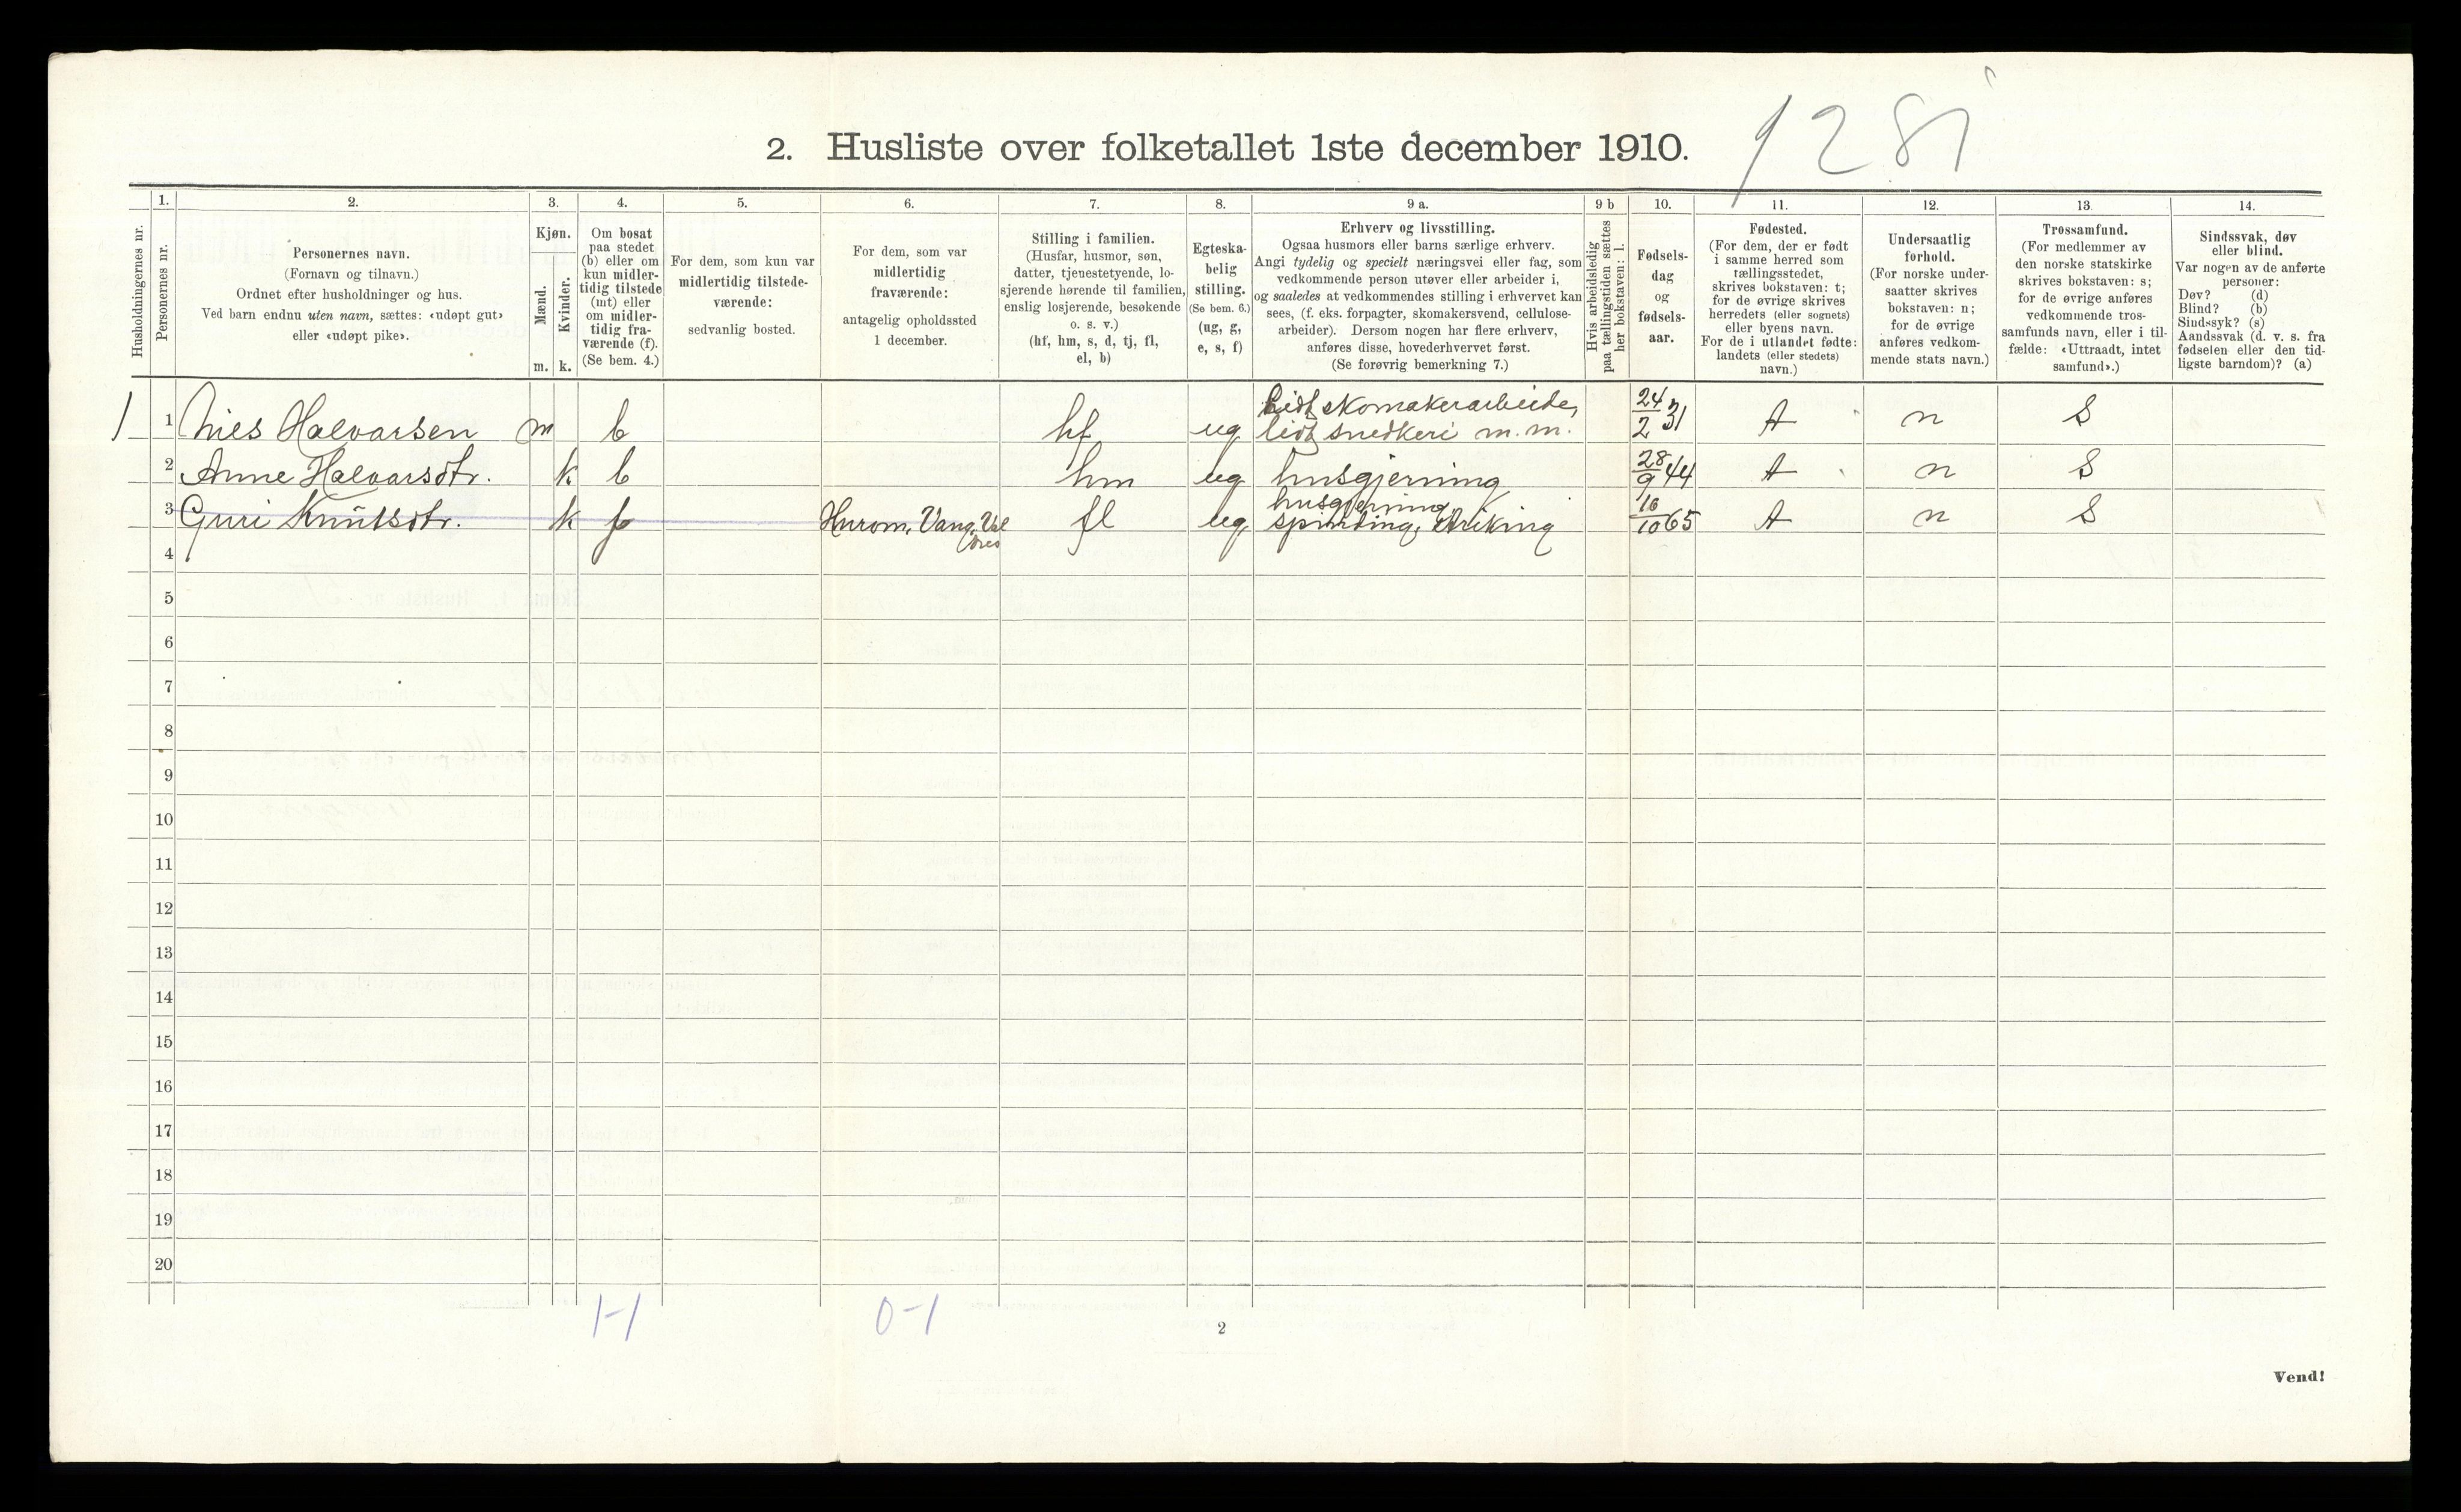 1281
2. Husliste over folketallet 1ste december 1910.
Husholdningernes nr.
1.
Personernes nr.
2.
Personernes navn.
(Fornavn og tilnavn.)
Ordnet efter husholdninger og hus.
Ved barn endnu uten navn, sættes: «udøpt gut»
eller «udøpt pike».
3.
Kjøn.
Mænd.
Kvinder.
m. k.
4.
Om bosat
paa stedet
(b) eller om
kun midler-
tidig tilstede
(mt) eller
om midler-
tidig fra-
værende (f).
(Se bem. 4.)
5.
For dem, som kun var
midlertidig tilstede-
værende:
sedvanlig bosted.
6.
For dem, som var
midlertidig
fraværende:
antagelig opholdssted
1 december.
7.
Stilling i familien.
(Husfar, husmor, søn,
datter, tjenestetyende, lo-
sjerende hørende til familien,
enslig losjerende, besøkende
o. s. v.)
(hf, hm, s, d, tj, fl,
el, b)
8.
Egteska-
belig
stilling.
(Se bem. 6.)
(ug, g,
e, s, f)
9 a.
Erhverv og livsstilling.
Ogsaa husmors eller barns særlige erhverv.
Angi tydelig og specielt næringsvei eller fag, som
vedkommende person utøver eller arbeider i,
og saaledes at vedkommendes stilling i erhvervet kan
sees, (f. eks. forpagter, skomakersvend, cellulose-
arbeider). Dersom nogen har flere erhverv,
anføres disse, hovederhvervet først.
(Se forøvrig bemerkning 7.)
9 b
Hvis arbeidsledig
paa tællingstiden sættes
her bokstaven: l.
10.
Fødsels-
dag
og
fødsels-
aar.
11.
Fødested.
(For dem, der er født
i samme herred som
tællingsstedet,
skrives bokstaven: t;
for de øvrige skrives
herredets (eller sognets)
eller byens navn.
For de i utlandet fødte:
landets (eller stedets)
navn.)
12.
Undersaatlig
forhold.
(For norske under-
saatter skrives
bokstaven: n;
for de øvrige
anføres vedkom-
mende stats navn.)
13.
Trossamfund.
(For medlemmer av
den norske statskirke
skrives bokstaven: s;
for de øvrige anføres
vedkommende tros-
samfunds navn, eller i til-
fælde: «Uttraadt, intet
samfund».)
14.
Sindssvak, døv
eller blind.
Var nogen av de anførte
personer:
Døv? (d)
Blind? (b)
Sindssyk? (s)
Aandssvak (d. v. s. fra
fødselen eller den tid-
ligste barndom)? (a)
1 1 Nies Halvarsen m b hf ug Lidt skomakerarbeide, lidt snedkeri m.m. 24/2 31 t n S
2 Anne Halvarsdtr. k b hm ug husgjerning 28/9 44 t n S
3 Guri Knutsdtr. k f Hurom, Vang, Valdres fl ug husgjerning, spinding, strikking 16/10 65 t n S
4
5
6
7
8
9
10
11
12
13
14
15
16
17
18
19
20
1-1 0-1
2
Vend!